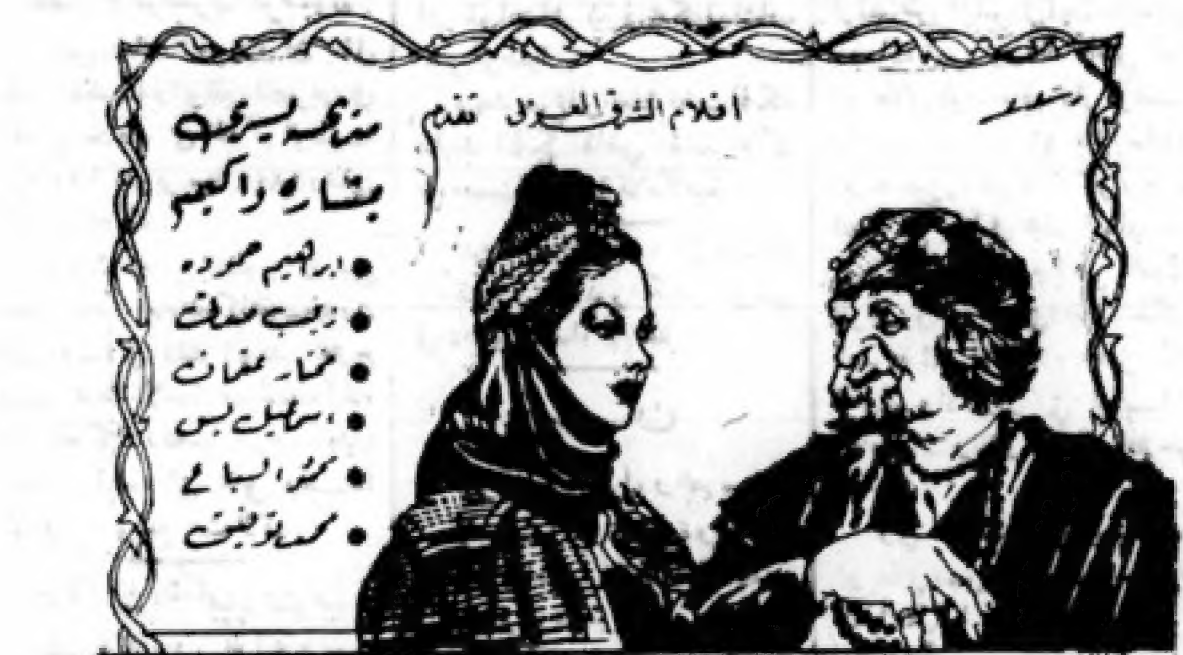 افلام الشرق تقدم
مديحه يسرى
بشاره واكيم
• ابراهيم حموده
• زينب صدقى
• مختار عثمان
• اسماعيل يس
• محمد توفيق